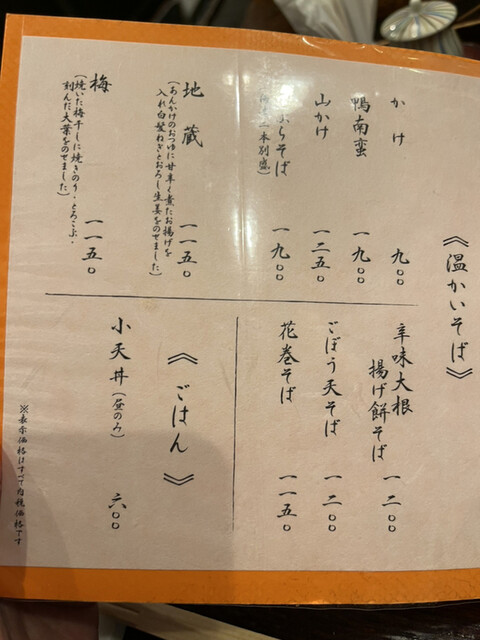 《温かいそば》
かけ 九〇〇
鴨南蛮 一九〇〇
山かけ 一二五〇
ぷらそば 一九〇〇
本別盛)
地蔵 一一五〇
(あんかけのおつゆに甘辛く煮たお揚げを
入れ白髪ねぎとおろし生姜をのせました)
梅 一一五〇
(焼いた梅干しに焼きのり・とろろこぶ・
刻んだ大葉をのせました)
辛味大根
揚げ餅そば 一二〇〇
ごぼう天そば 一二〇〇
花巻そば 一一五〇
《ごはん》
小天丼(昼のみ) 六〇〇
※表示価格はすべて内税価格です